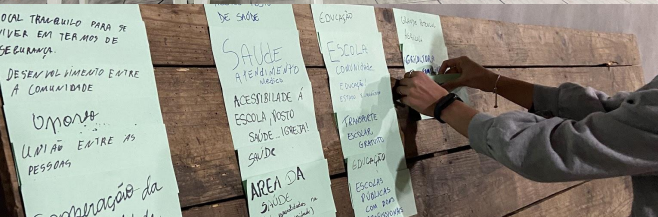 OCAL TRANQUILO PARA SE
VIVER EM TERMOS DE
SEGURANÇA.
DESENVOLVIMENTO ENTRE
A COMUNIDADE
O povo
UNIÃO ENTRE AS
PESSOAS
Cooperação da
DE SAÚDE
SAUDE
ATENDIMENTO
MEDICO
ACESSIBILADE À
ESCOLA, POSTO
SAÚDE - IGREJA!
SAUDE
AREA DA
SAÚDE
EDUCAÇÃO
ESCOLA
COMUNIDADE
EDUCAÇÃO
TRANSPORTE
ESCOLAR
GRATUITO
EDUCAÇÃO
ESCOLAS
PÚBLICAS
COM BONS